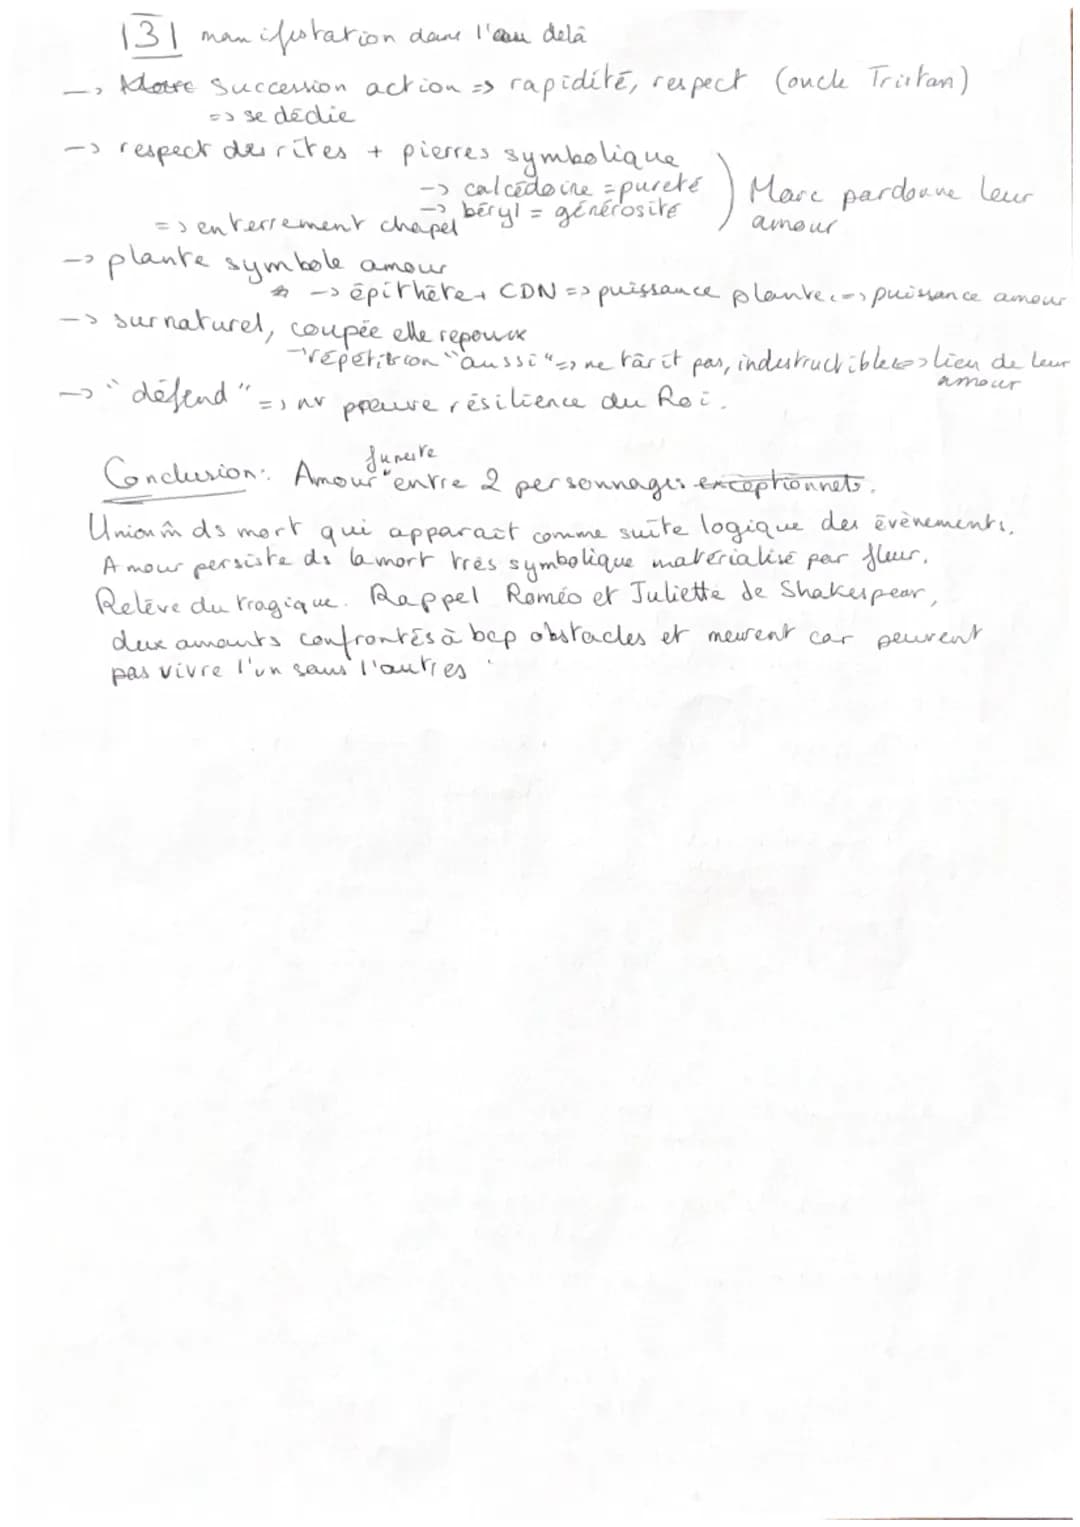 |3| manifestation dans l'au delà
-> Marc Succession action => rapidité, respect (oncle Tristan)
=> se dédie
-> respect des rites + pierres symbolique
-> calcédoine = pureté
-> béryl = générosité
=> enterrement chapel
) Marc pardonne leur
amour
-> plante symbole amour
-> épithète + CDN => puissance plante => puissance amour
-> surnaturel, coupée elle repousse
-> répétition "aussi" => ne tarit pas, indestructible <=> lien de leur
amour
-> "défend" => nv preuve résilience du Roi.
funeste
Conclusion: Amour entre 2 personnages exceptionnels.
Union m̂ ds mort qui apparaît comme suite logique des évènements.
Amour persiste ds la mort très symbolique matérialisé par fleur.
Relève du tragique. Rappel Roméo et Juliette de Shakespear,
deux amants confrontés à bcp obstacles et meurent car peuvent
pas vivre l'un sans l'autres